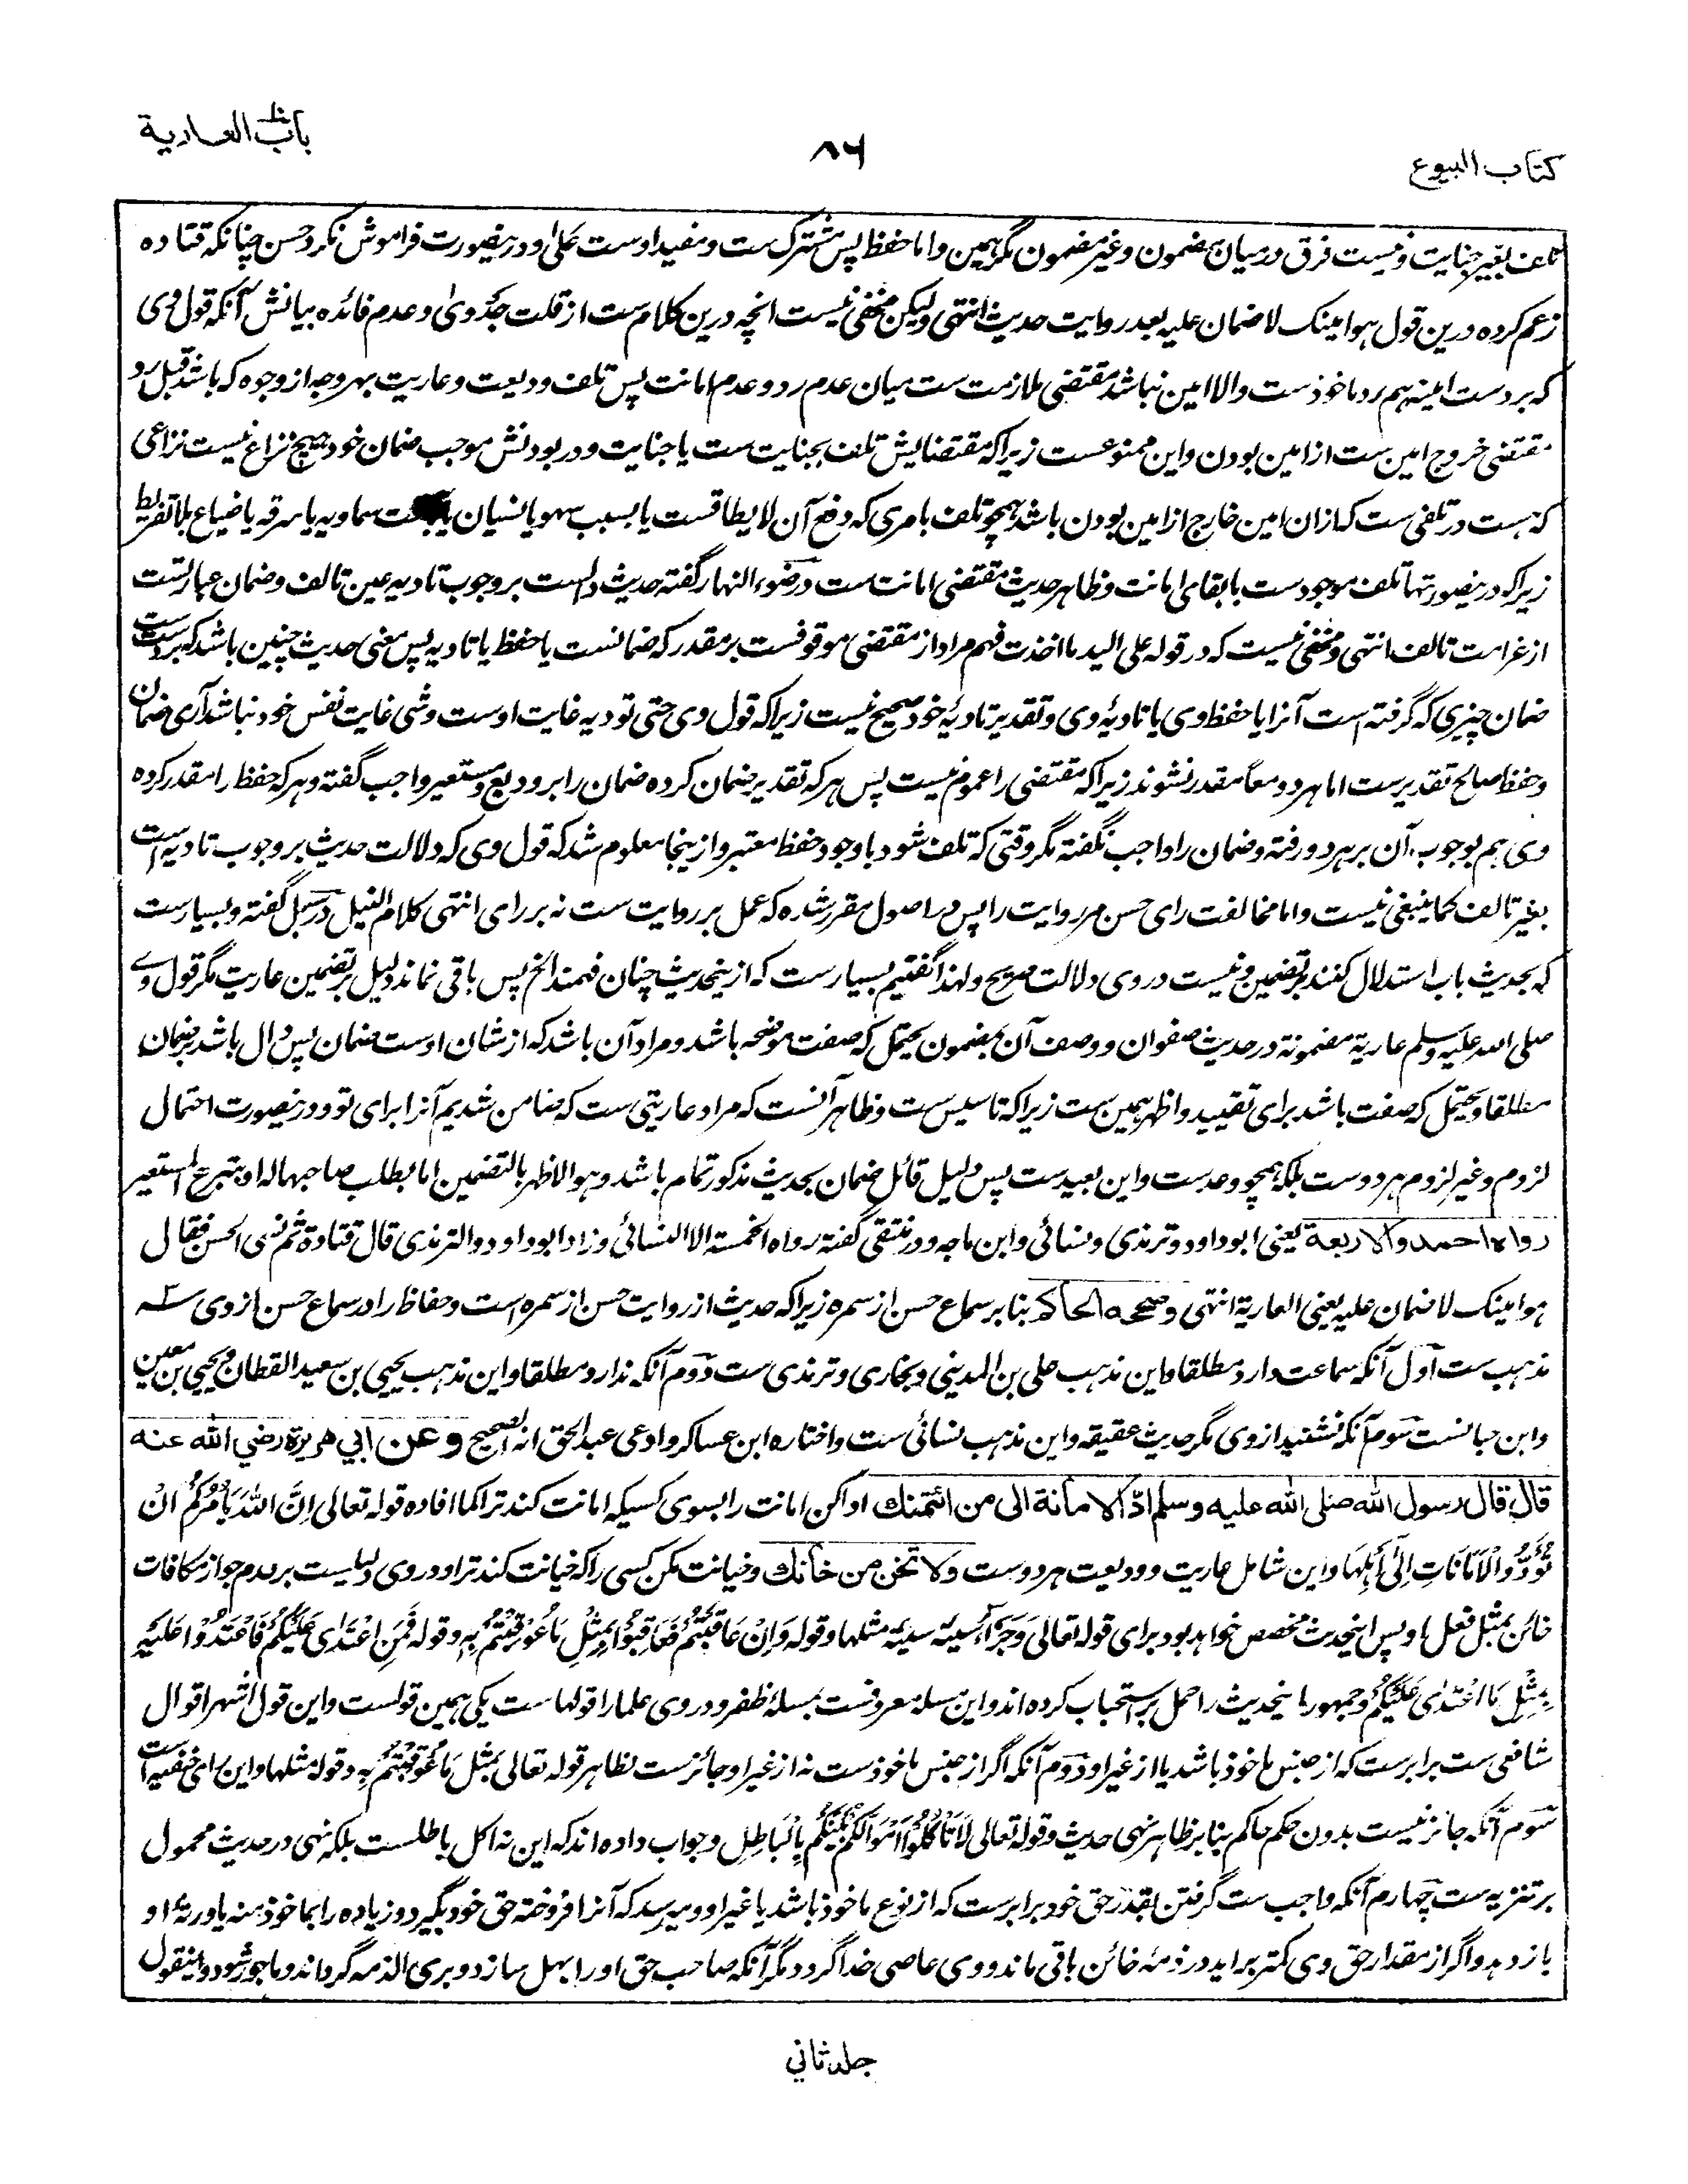 باب العارية
۸۶
كتاب البيوع
تلف بغیر جنایت ونیست فرق درمیان مضمون وغیر مضمون مگر همین واما حفظ پس مشترک ست ومفید اوست علی او ودرینصورت فراموش نکرد حسن چنانکه قتاده
زعم کرده درین قول هو امینک لا ضمان علیه بعد روایت حدیث انتهی ولیکن مخفی نیست انچه درین کلام ست از قلت جدوی وعدم فائده بیانش آنکه قول وی
که بر دست امینه هم رد ماخوذ ست والا امین نباشد مقتضی ملازمت ست میان عدم رد وعدم امانت پس تلف ودیعت وعاریت بهر وجه از وجوه که باشد قبل رد
مقتضی خروج امین ست از امین بودن واین ممنوعست زیراکه مقتضایش تلف بجنایت ست یا جنایت ودر بودنش موجب ضمان خود هیچ نزاع نیست نزاعی
که هست در تلفی ست که ازان امین خارج از امین بودن باشد همچو تلف بامری که دفع آن لا یطاقست یا بسبب سهو یا نسیان یا سماویه یا سرقه یا ضیاع بلا تفریط
زیراکه درینصورتها تلف موجود ست با بقای امانت وظاهر حدیث مقتضی امانت ست در ضوء النهار گفته حدیث دالست بر وجوب تادیه عین تالف وضمان عبارتست
از غرامت تالف انتهی ومخفی نیست که در قوله علی الید ما اخذت فهم مراد از مقتضی موقوفست بر مقدر که ضمانست یا حفظ یا تادیه پس معنی حدیث چنین باشد که بر دست ست
ضمان چیزی که گرفته است آنرا یا حفظ وی یا تادیهٔ وی وتقدیر تادیهٔ خود صحیح نیست زیراکه قول وی حتی تودیه غایت اوست وشی غایت نفس خود نباشد آری ضمان
وحفظ صالح تقدیر ست اما هر دو معا مقدر نشوند زیراکه مقتضی را عموم نیست پس هر که تقدیر ضمان کرده ضمان را بر ودیع ومستعیر واجب گفته وهر که حفظ را مقدر کرده
وی هم بوجوب آن بر هر دو رفته وضمان را واجب نگفته مگر وقتی که تلف شود باوجود حفظ معتبر وازینجا معلوم شد که قول وی که دلالت حدیث بر وجوب تادیه است
بغیر تالف کما ینبغی نیست واما مخالفت رای حسن مر روایت را پس در اصول مقرر شده که عمل بر روایت ست نه بر رای انتهی کلام النیل در سبل گفته وبسیار ست
که بحدیث باب استدلال کنند بر تضمین ونیست در وی دلالت صریح ولهذا گفتیم بسیار ست که از ینحدیث چنان فهمند الخ پس باقی نماند دلیل بر تضمین عاریت مگر قول وے
صلی الله علیه وسلم عاریة مضمونة در حدیث صفوان ووصف آن بمضمون یحتمل که صفت موضحه باشد ومراد آن باشد که از شان اوست ضمان پس دال باشد بر ضمان
مطلقا ویحتمل که صفت باشد برای تقیید واظهر همین ست زیراکه تاسیس ست وظاهر آنست که مراد عاریتی ست که ضامن شدیم آنرا برای تو ودرینصورت احتمال
لزوم وغیر لزوم هر دوست بلکه همچو وعد ست واین بعید ست پس دلیل قائل ضمان بحدیث مذکور تمام باشد وهو الاظهر بالتضمین اما بطلب صاحبها له او بتبرع المستعیر
رواه احمد والاربعة یعنی ابو داود وترمذی ونسائی وابن ماجه ودر منتقی گفته رواه الخمسة الا النسائی وزاد ابو داود والترمذی قال قتادة ثم نسی الحسن فقال
هو امینک لا ضمان علیه یعنی العاریة انتهی وصححه الحاکم بنا بر سماع حسن از سمره زیراکه حدیث از روایت حسن از سمره است وحفاظ را در سماع حسن از وی سه
مذهب ست اول آنکه سماعت دارد مطلقا واین مذهب علی بن المدینی وبخاری وترمذی ست دوم آنکه ندارد مطلقا واین مذهب یحیی بن سعید القطان ویحیی بن معین
وابن حبانست سوم آنکه نشنید از وی مگر حدیث عقیقه واین مذهب نسائی ست واختاره ابن عساکر وادعی عبد الحق انه الصحیح وعن ابي هريرة رضي الله عنه
قال قال رسول الله صلى الله عليه وسلم ادّ الامانة الى من ائتمنك ادا کن امانت را بسوی کسیکه امانت کند ترا کما افاده قوله تعالی اِنَّ اللّٰهَ یَاْمُرُکُمْ اَنْ
تُؤَدُّوا الْاَمَانَاتِ اِلٰی اَهْلِهَا واین شامل عاریت وودیعت هر دوست ولا تخن من خانك وخیانت مکن کسی را که خیانت کند ترا ودر وی دلیلست بر عدم جواز مکافات
خائن بمثل فعل او پس اینحدیث مخصص خواهد بود برای قوله تعالی وَجَزٰٓؤُا سیئة سیئة مثلها وقوله وَاِنْ عَاقَبْتُمْ فَعَاقِبُوْا بِمِثْلِ مَا عُوْقِبْتُمْ بِهٖ وقوله فَمَنِ اعْتَدٰی عَلَیْکُمْ فَاعْتَدُوْا عَلَیْهِ
بِمِثْلِ مَا اعْتَدٰی عَلَیْکُمْ وجمهور اینحدیث را حمل بر استحباب کرده اند واین مسئله معروفست بمسئلهٔ ظفر ودر وی علما را قولهاست یکی همین قولست واین قول اشهر اقوال
شافعی ست برابر ست که از جنس ماخوذ باشد یا از غیر او دوم آنکه اگر از جنس ماخوذ ست نه از غیر او جائز ست لظاهر قوله تعالی بمثل مَا عُوْقِبْتُمْ بِهٖ وقوله مثلها واین رای حنفیه است
سوم آنکه جائز نیست بدون حکم حاکم بنا بر ظاهر نهی حدیث وقوله تعالی لَا تَاْکُلُوْٓا اَمْوَالَکُمْ بَیْنَکُمْ بِالْبَاطِلِ وجواب داده اند که این نه اکل باطلست بلکه نهی در حدیث محمول
بر تنزیه ست چهارم آنکه واجب ست گرفتن بقدر حق خود برابر ست که از نوع ماخوذ باشد یا غیر او ومیرسد که آنرا فروخته حق خود بگیرد وزیاده را بماخوذ منه یا ورثهٔ او
باز دهد واگر از مقدار حق وی کمتر براید در ذمهٔ خائن باقی ماند ووی عاصی خدا گردد مگر آنکه صاحب حق او را بهل سازد وبری الذمه گرداند وماجور شود واینقول
جلد ثاني